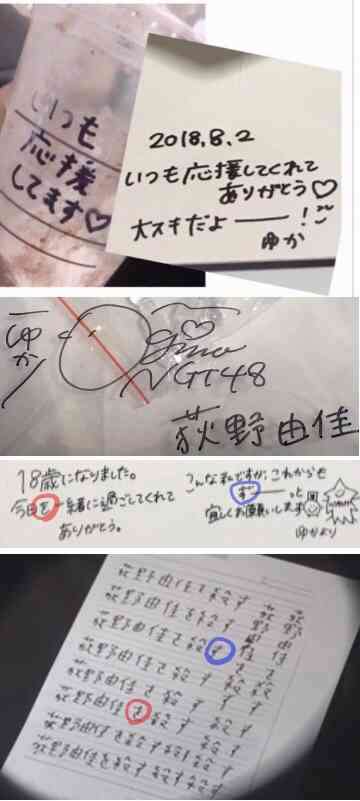 いつも
応援
してます♡
2018.8.2
いつも応援してくれて
ありがとう♡
大スキだよ───!
ゆか
ゆか
NGT48
荻野由佳
18歳になりました。
今日を一緒に過ごしてくれて
ありがとう。
こんな私ですが、これからも
ず──っと
宜しくお願いします
ゆかより
荻野由佳を殺す
荻野由佳を殺す
荻野由佳を殺す
荻野由佳を殺す
荻野由佳を殺す
荻野由佳を殺す
荻野由佳を殺す
荻野由佳を殺す